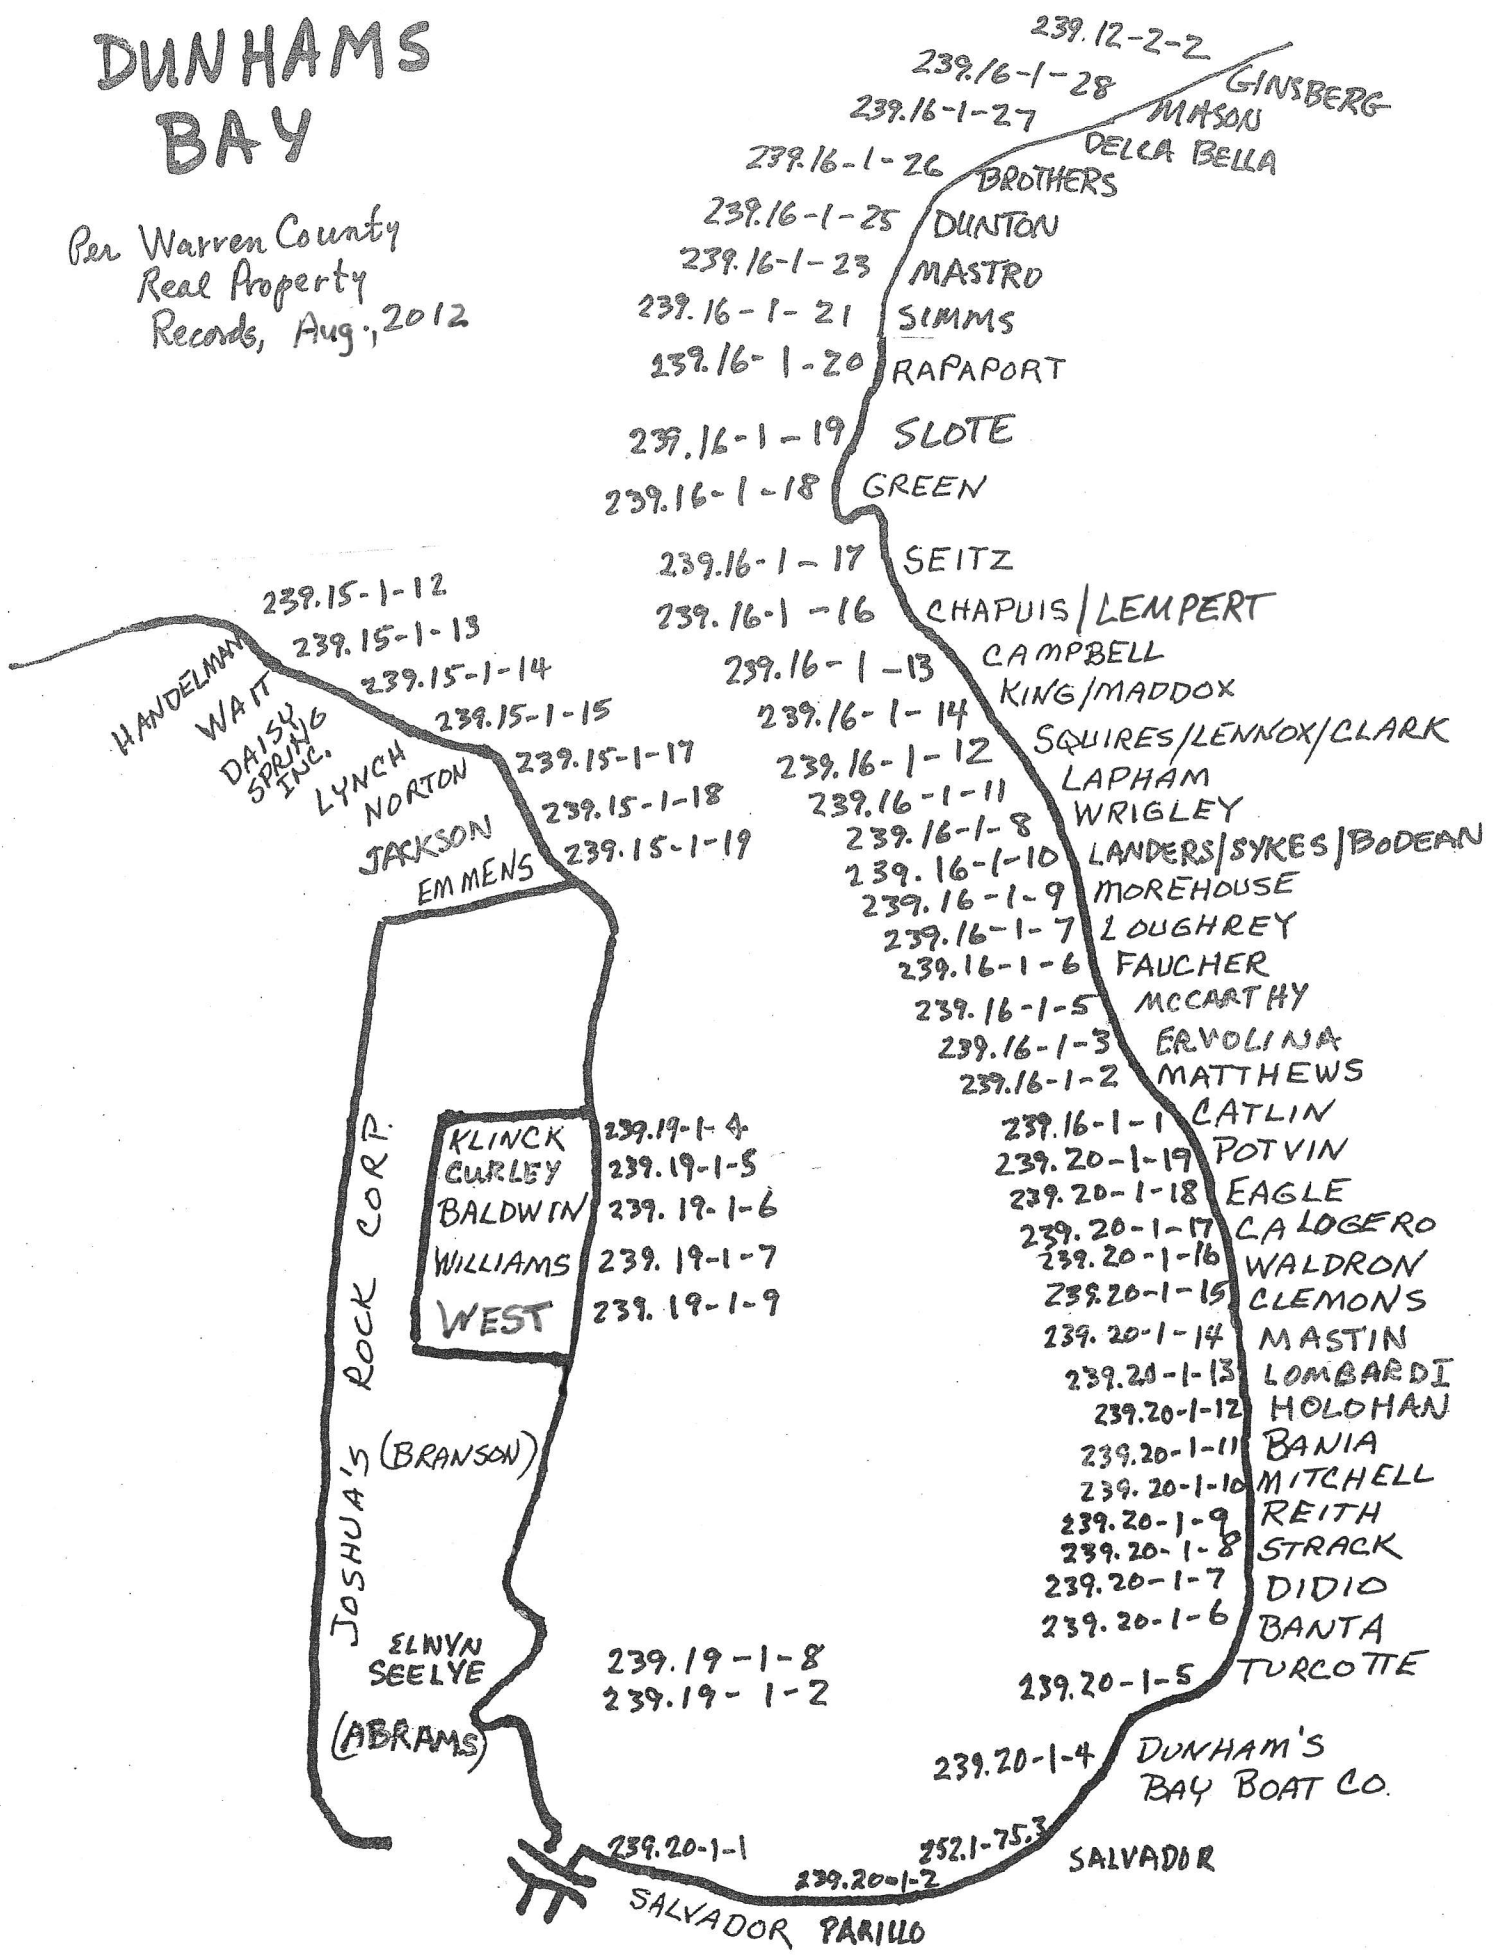 DUNHAMS
BAY
Per Warren County
Real Property
Records, Aug., 2012
239.12-2-2 GINSBERG
239.16-1-28 MASON
239.16-1-27 DELLA BELLA
239.16-1-26 BROTHERS
239.16-1-25 DUNTON
239.16-1-23 MASTRO
239.16-1-21 SIMMS
239.16-1-20 RAPAPORT
239.16-1-19 SLOTE
239.16-1-18 GREEN
239.16-1-17 SEITZ
239.16-1-16 CHAPUIS/LEMPERT
239.16-1-13 CAMPBELL
239.16-1-14 KING/MADDOX
239.16-1-12 SQUIRES/LENNOX/CLARK
239.16-1-11 LAPHAM
239.16-1-8 WRIGLEY
239.16-1-10 LANDERS/SYKES/BODEAN
239.16-1-9 MOREHOUSE
239.16-1-7 LOUGHREY
239.16-1-6 FAUCHER
239.16-1-5 MCCARTHY
239.16-1-3 ERVOLINA
239.16-1-2 MATTHEWS
239.16-1-1 CATLIN
239.20-1-19 POTVIN
239.20-1-18 EAGLE
239.20-1-17 CALOGERO
239.20-1-16 WALDRON
239.20-1-15 CLEMONS
239.20-1-14 MASTIN
239.20-1-13 LOMBARDI
239.20-1-12 HOLOHAN
239.20-1-11 BANIA
239.20-1-10 MITCHELL
239.20-1-9 REITH
239.20-1-8 STRACK
239.20-1-7 DIDIO
239.20-1-6 BANTA
239.20-1-5 TURCOTTE
239.20-1-4 DUNHAM'S
BAY BOAT CO.
252.1-75.3 SALVADOR
239.20-1-2 PARILLO
239.20-1-1 SALVADOR
HANDELMAN 239.15-1-12
WAIT 239.15-1-13
DAISY
SPRING
INC.
239.15-1-14
LYNCH 239.15-1-15
NORTON 239.15-1-17
JACKSON 239.15-1-18
EMMENS 239.15-1-19
JOSHUA'S ROCK CORP.
KLINCK 239.19-1-4
CURLEY 239.19-1-5
BALDWIN 239.19-1-6
WILLIAMS 239.19-1-7
WEST 239.19-1-9
(BRANSON)
ELWYN
SEELYE
239.19-1-8
239.19-1-2
(ABRAMS)